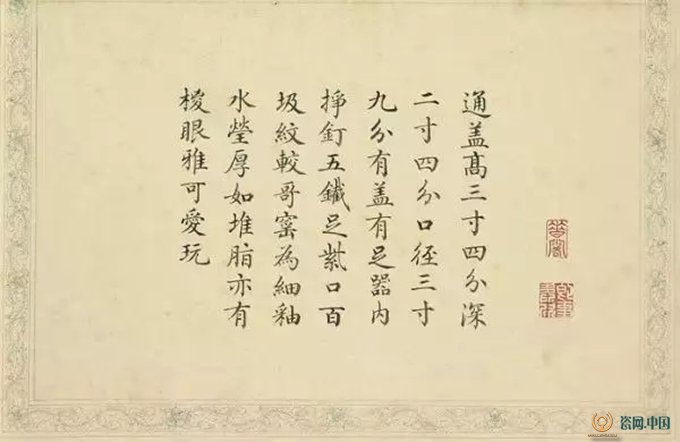 通盖髙三寸四分深
二寸四分口徑三寸
九分有盖有足器内
掙釘五鐵足紫口百
圾紋較哥窑為細釉
水瑩厚如堆脂亦有
椶眼雅可愛玩
瓷网.中国